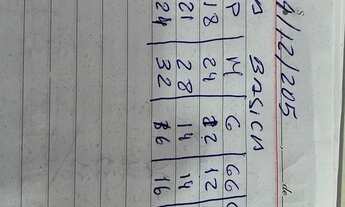 4/12/205 de
BASICA
P M G GG
18 24 12 12
21 28 14 14
24 32 16 16